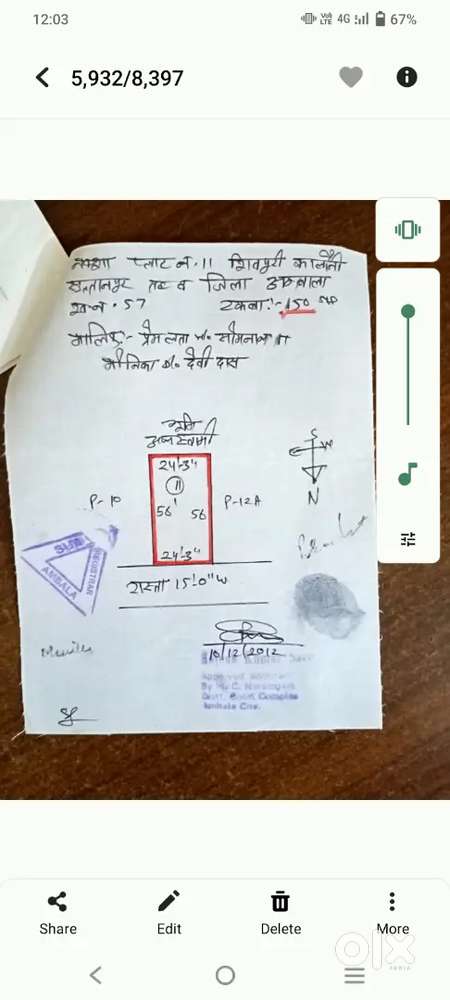 12:03
4G
67%
5,932/8,397
नक्शा प्लाट नं. 11 शिवपुरी कालोनी
सुल्तानपुर तह व जिला अम्बाला
ख नं. 57 रकबा :- 150
मालिक :- प्रेम लता w/o सोमनाथ
मोनिका देवी दास
भूमि
अन्य स्वामी
24'-3"
11
P-10
56'
56
P-12A
24'-3"
S
W
N
रास्ता 15'-0" W
SUB
REGISTRAR
AMBALA
10/12/2012
Govt. Complex
Ambala City.
olx
INDIA
Share
Edit
Delete
More